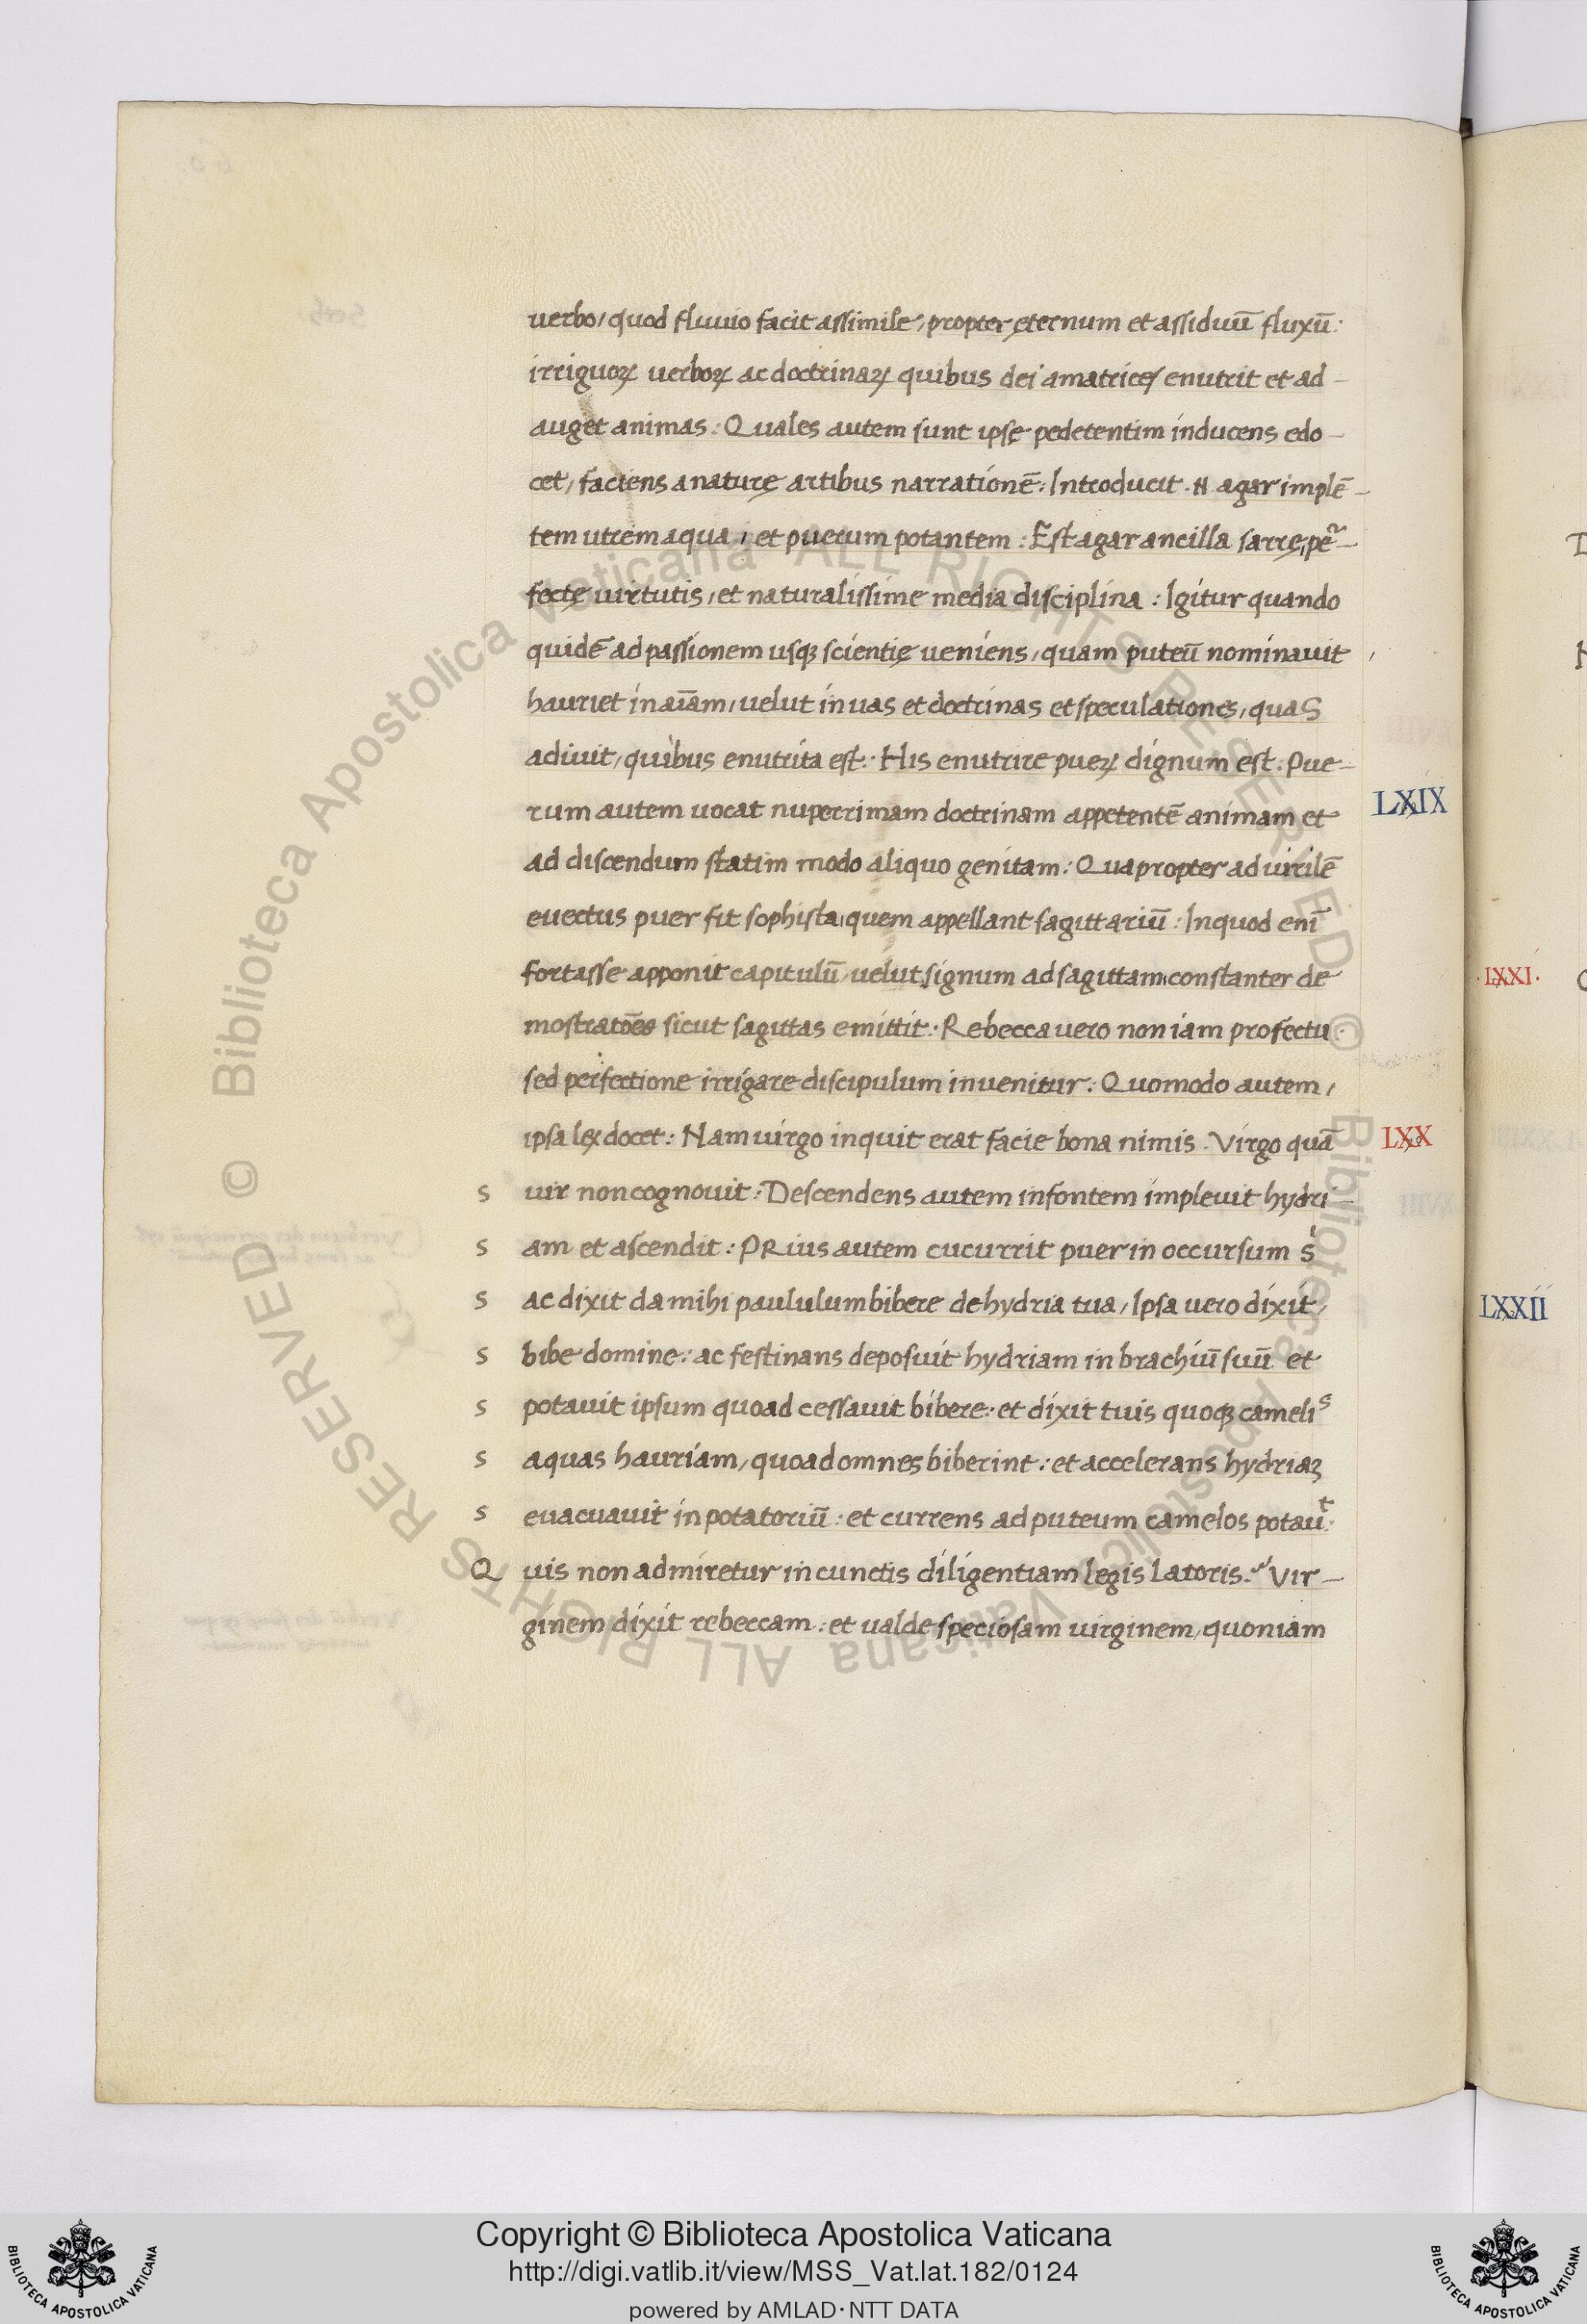 verbo, quod fluuio facit assimile, propter ęternum et assiduū fluxū:
irriguoꝝ verboꝝ ac doctrinaꝝ quibus dei amatrices enutrit et ad-
auget animas: Quales autem sunt ipse pedetentim inducens edo-
cet, faciens a naturę artibus narrationē: Introducit . N agar implē-
tem utrem aqua, et puerum potantem: Est agar ancilla sarrę, per-
fectę virtutis, et naturalissime media disciplina: Igitur quando
quidē ad passionem usqꝫ scientię veniens, quam puteū nominauit,
hauriet in aīam, uelut in uas et doctrinas et speculationes, quas
adiuit, quibus enutrita est: His enutrire pueꝝ dignum est. Pue-
rum autem uocat nuperrimam doctrinam appetentē animam et
LXIX
ad discendum statim modo aliquo genitam: Quapropter ad uirilē
euectus puer fit sophista, quem appellant sagittariū: Inquod enī
fortasse apponit capitulū uelut signum ad sagittam constanter de
mostratōes sicut sagittas emittit: Rebecca uero non iam profectu
sed perfectione irrigare discipulum inuenitur: Quomodo autem,
ipsa lex docet: Nam uirgo inquit erat facie bona nimis. Virgo quā
LXX
s uir non cognouit: Descendens autem in fontem impleuit hydri-
s am et ascendit: PRius autem cucurrit puer in occursum s
s ac dixit da mihi paululum bibere de hydria tua, Ipsa uero dixit,
s bibe domine: ac festinans deposuit hydriam in brachiū suū et
s potauit ipsum quoad cessauit bibere: et dixit tuis quoqꝫ camelis
s aquas hauriam, quoad omnes biberint: et accelerans hydriaꝫ
s euacuauit in potatoriū: et currens ad puteum camelos potauᵗ:
Q uis non admiretur in cunctis diligentiam legis latoris. Vir-
ginem dixit rebeccam: et ualde speciosam uirginem, quoniam
LXXI.
LXXII
Copyright © Biblioteca Apostolica Vaticana
http://digi.vatlib.it/view/MSS_Vat.lat.182/0124
powered by AMLAD·NTT DATA
BIBLIOTECA APOSTOLICA VATICANA
BIBLIOTECA APOSTOLICA VATICANA
© Biblioteca Apostolica Vaticana ALL RIGHTS RESERVED © Biblioteca Apostolica Vaticana ALL RIGHTS RESERVED